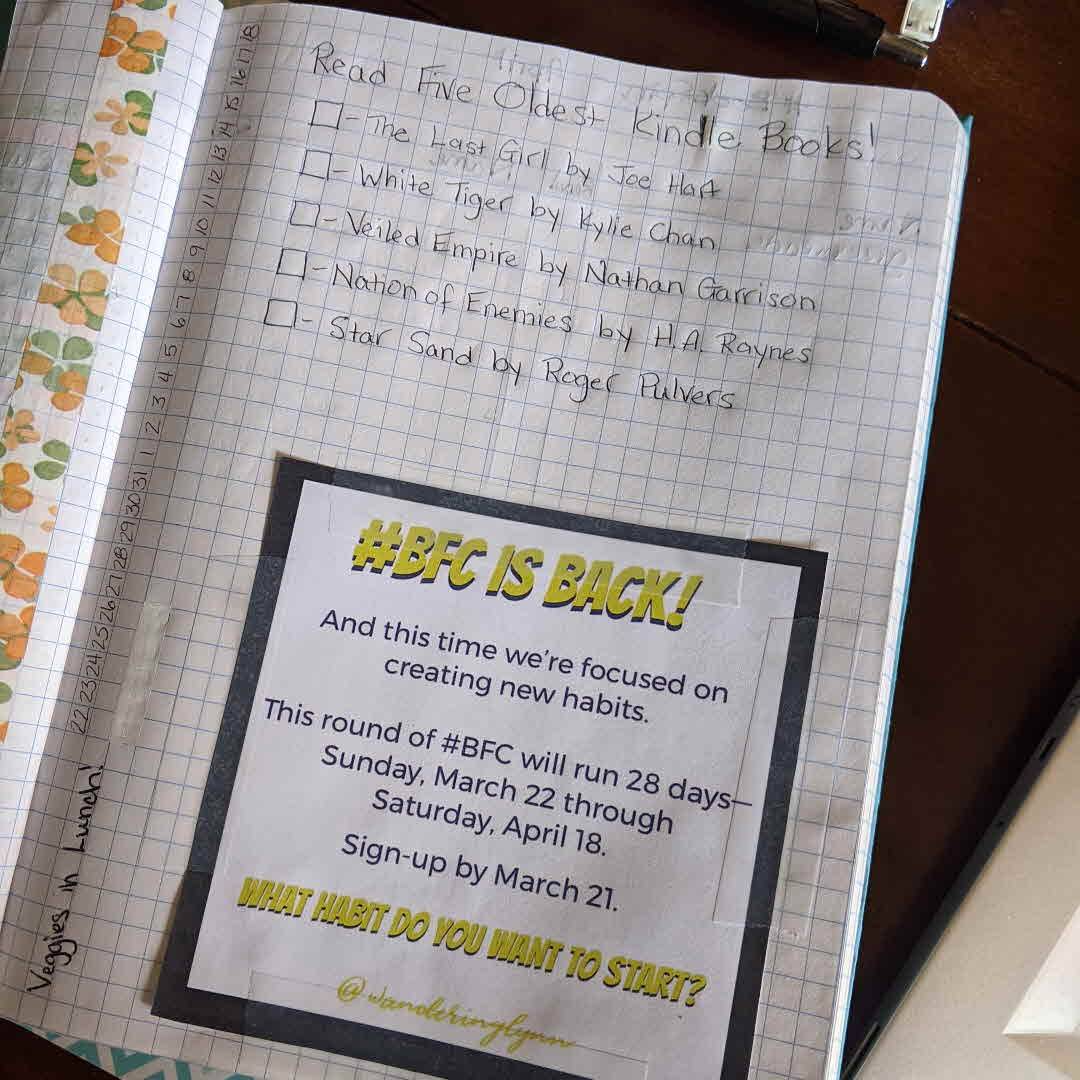 Read Five Oldest Kindle Books!
- The Last Girl by Joe Hart
- White Tiger by Kylie Chan
- Veiled Empire by Nathan Garrison
- Nation of Enemies by H.A. Raynes
- Star Sand by Roger Pulvers
#BFC IS BACK!
And this time we're focused on
creating new habits.
This round of #BFC will run 28 days—
Sunday, March 22 through
Saturday, April 18.
Sign-up by March 21.
WHAT HABIT DO YOU WANT TO START?
@wanderinglynn
Veggies in Lunch! 22 23 24 25 26 27 28 29 30 31 1 2 3 4 5 6 7 8 9 10 11 12 13 14 15 16 17 18